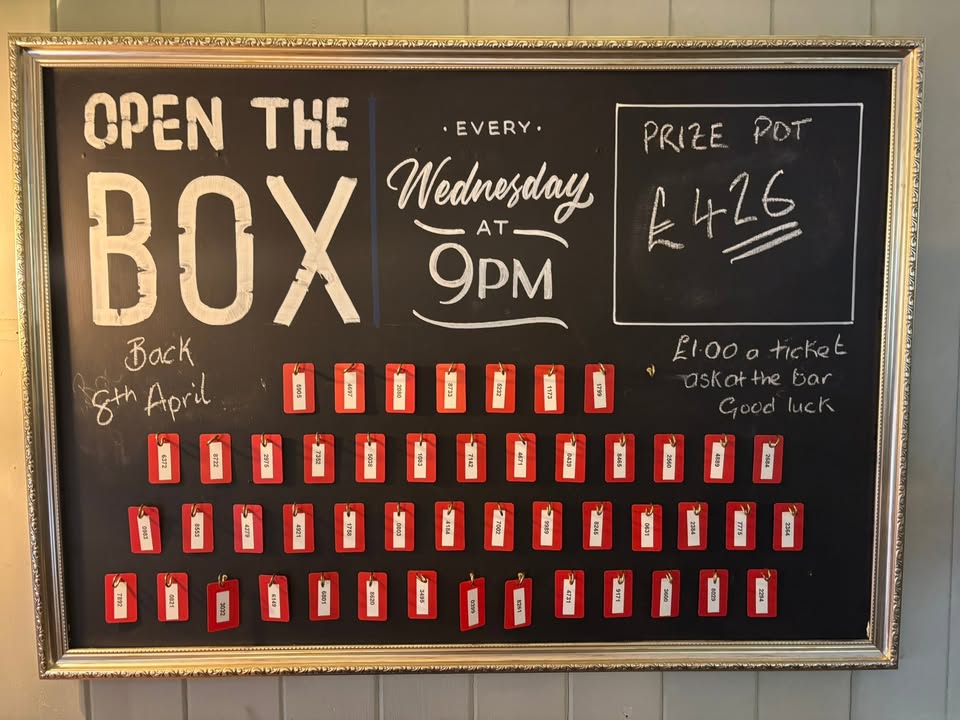 OPEN THE
BOX
· EVERY ·
Wednesday
AT
9PM
PRIZE POT
£426
Back
8th April
£1.00 a ticket
ask at the bar
Good luck
5905 4697 2080 8733 5232 1173 1799
6372 8722 2975 7352 5038 1003 7142 4671 0439 8465 2560 4889
0963 8553 4279 4921 1758 0803 4184 7002 9589 8245 0631 2384 7775 2364
7892 0821 3022 6149 6801 8620 3495 0399 4731 9171 2294